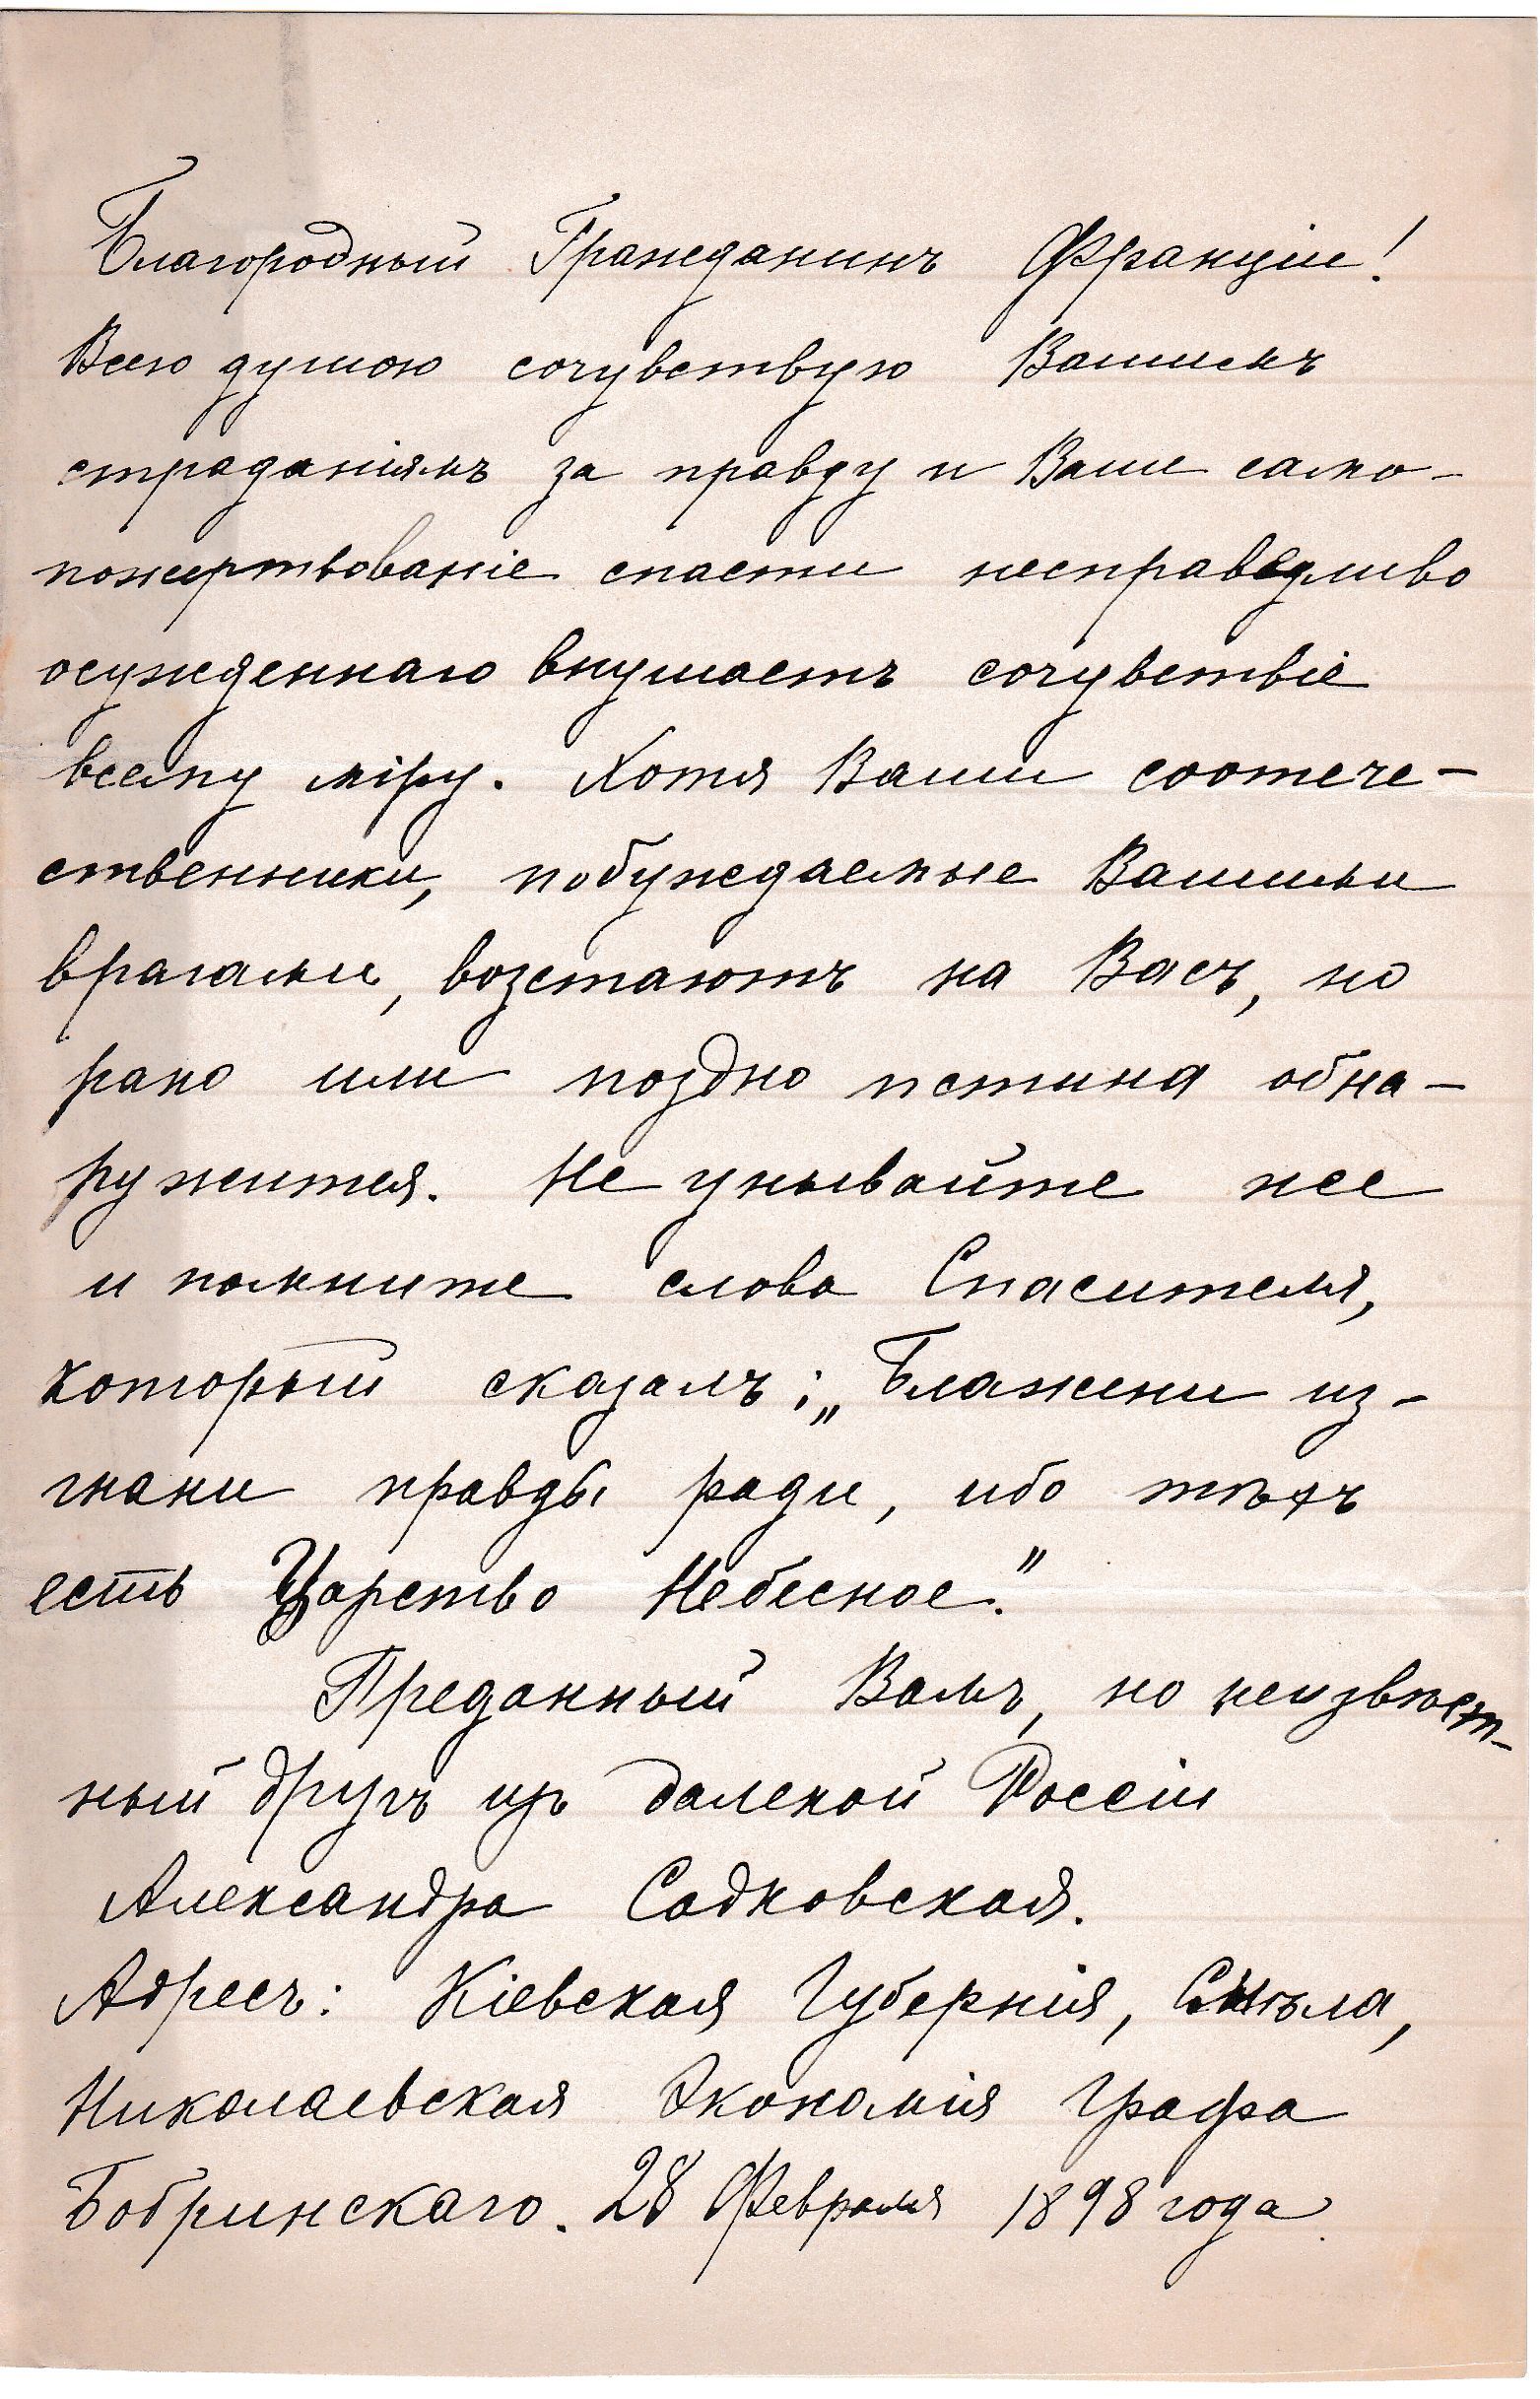 Благородный Гражданинъ Франціи!
Всею душою сочувствую Вашимъ
страданіямъ за правду и Ваше само-
пожертвованіе спасти несправедливо
осужденнаго внушаетъ сочувствіе
всему міру. Хотя Ваши соотече-
ственники, побуждаемые Вашими
врагами, возстаютъ на Васъ, но
рано или поздно истина обна-
ружится. Не унывайте же
и помните слова Спасителя,
который сказалъ: „Блажени из-
гнани правды ради, ибо тѣхъ
есть Царство Небесное."
Преданный Вамъ, но неизвѣст-
ный другъ изъ далекой Россіи
Александра Садковская.
Адресъ: Кіевская Губернія, Смѣла,
Николаевская Экономія Графа
Бобринскаго. 28 Февраля 1898 года